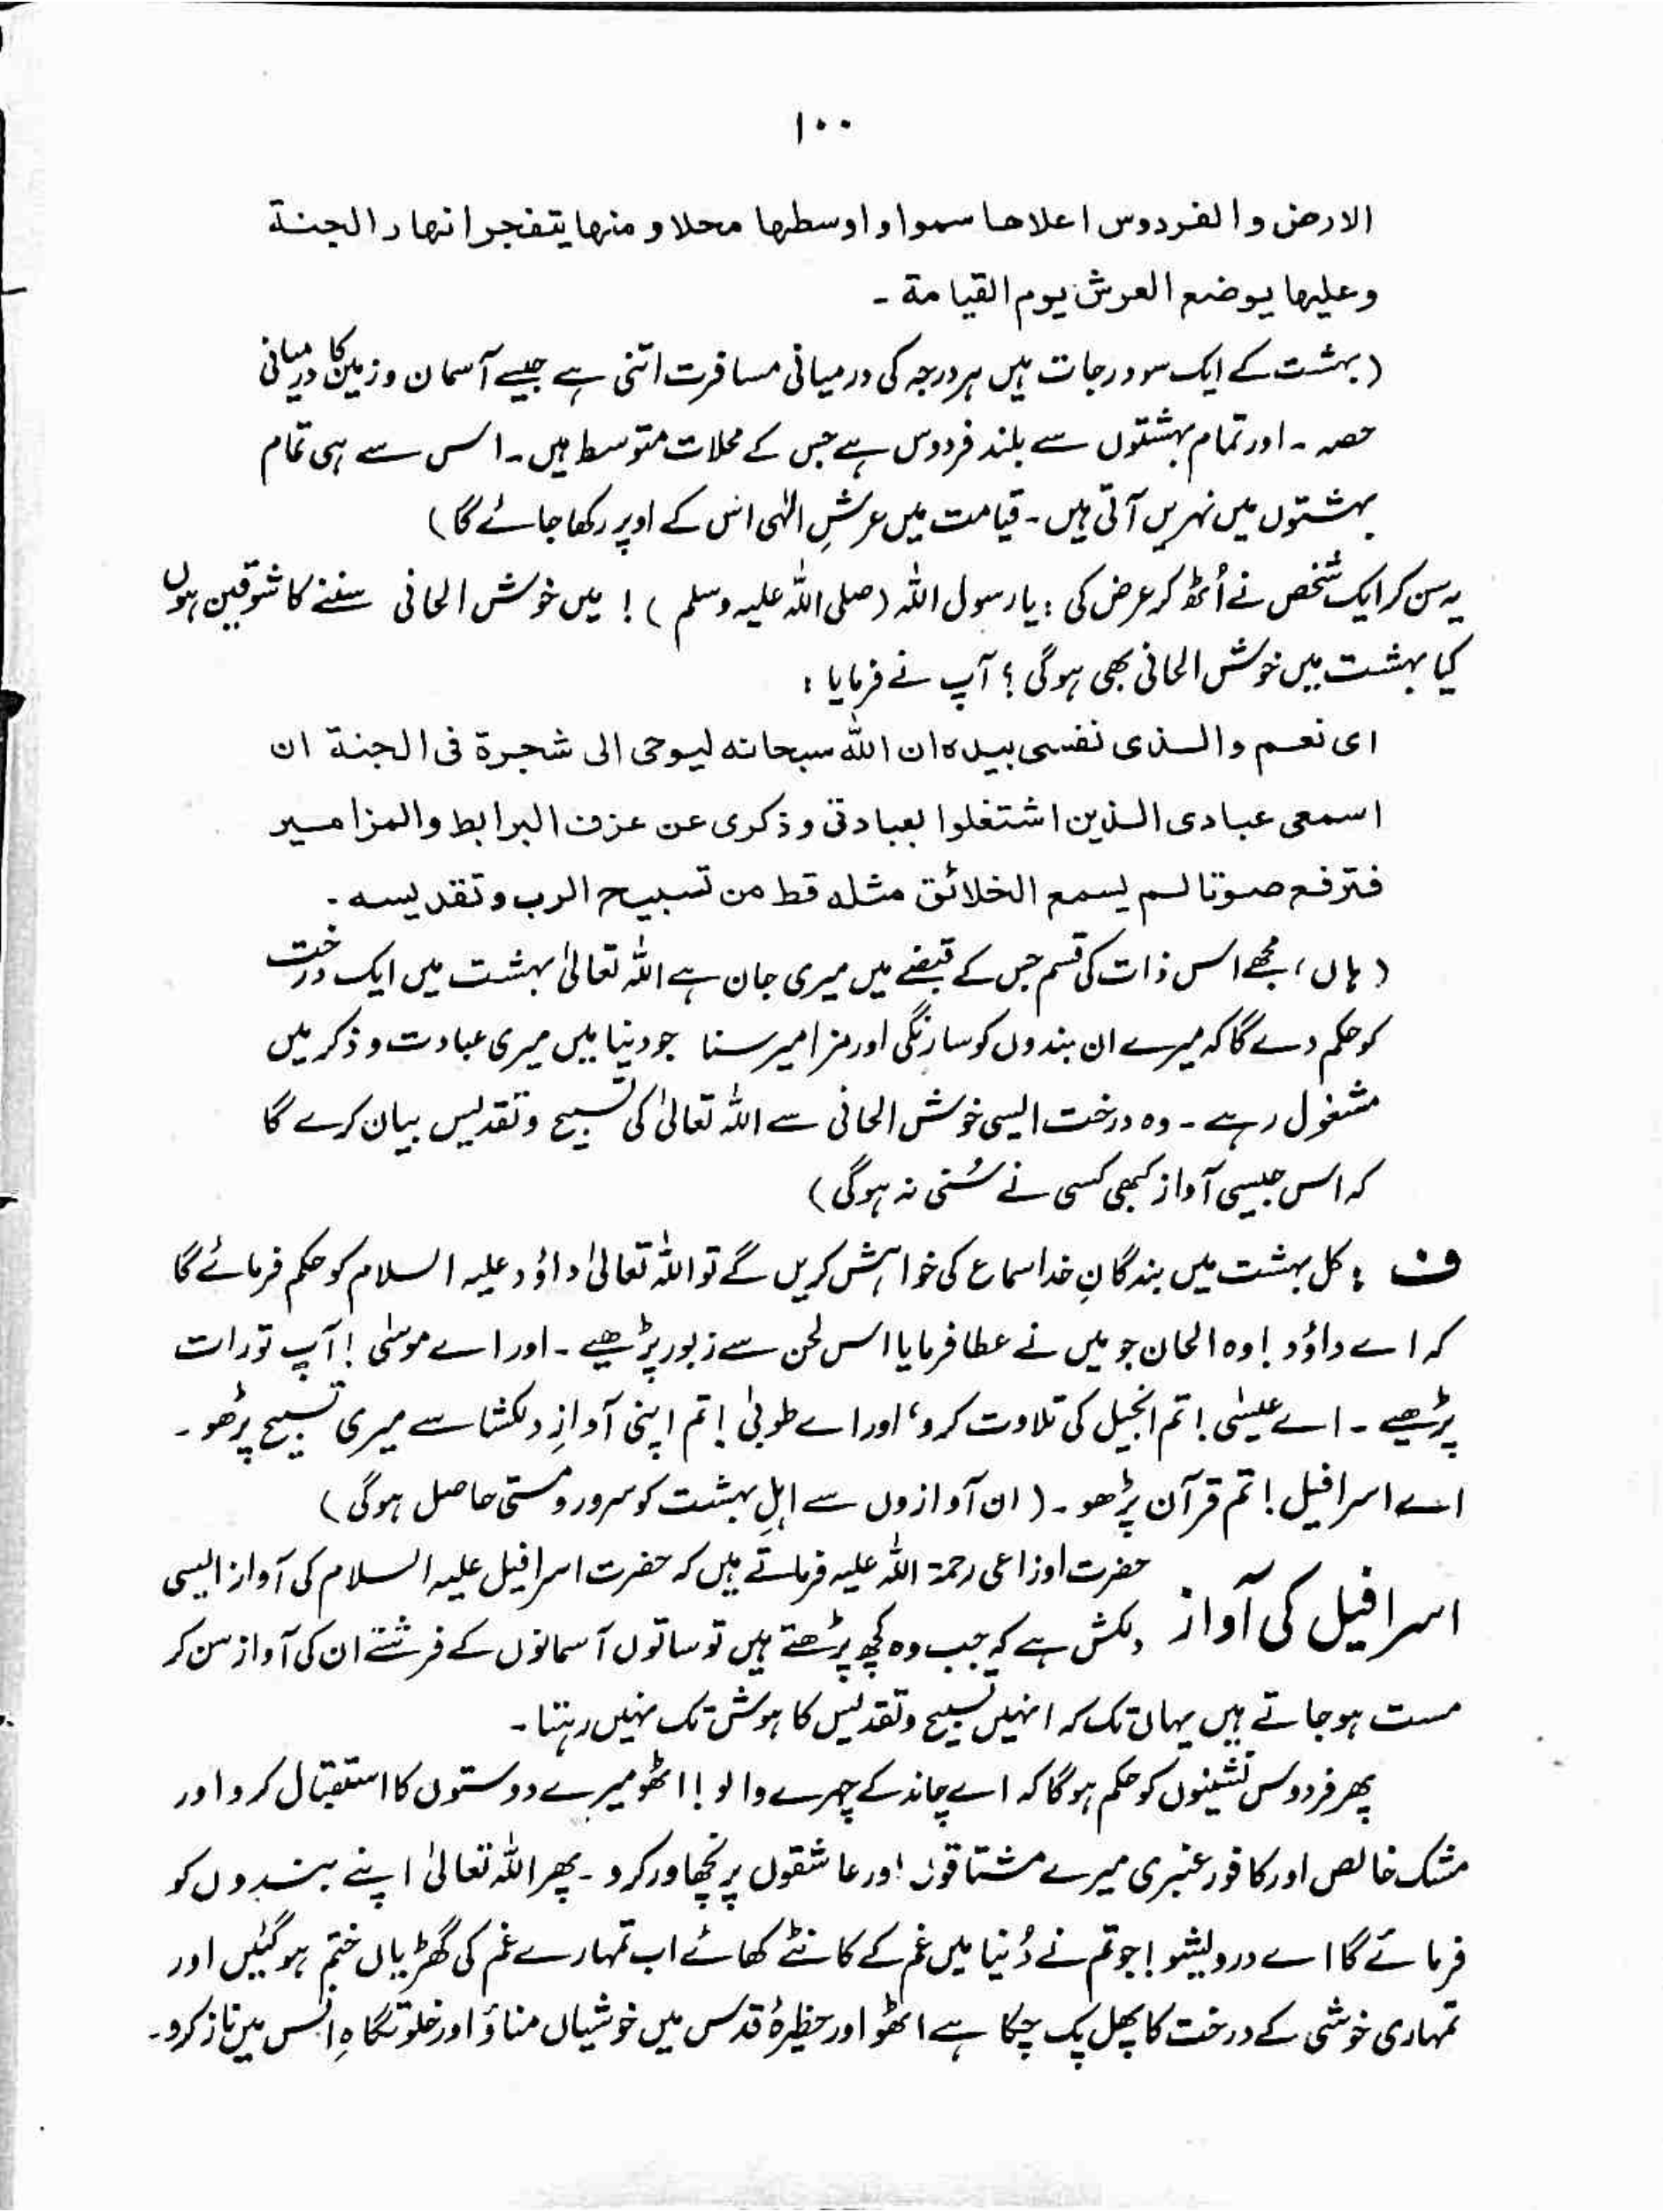 ۱۰۰
الارض والفردوس اعلاها سموا و اوسطها محلا و منها يتفجر انهار الجنة
وعليها يوضع العرش يوم القيامة ۔
(بہشت کے ایک سو درجات ہیں ہر درجہ کی درمیانی مسافرت اتنی ہے جیسے آسمان و زمین کا درمیانی
حصہ ۔ اور تمام بہشتوں سے بلند فردوس ہے جس کے محلات متوسط ہیں ۔ اس سے ہی تمام
بہشتوں میں نہریں آتی ہیں ۔ قیامت میں عرشِ الٰہی اس کے اوپر رکھا جائے گا)
یہ سن کر ایک شخص نے اُٹھ کر عرض کی : یا رسول اللہ (صلی اللہ علیہ وسلم) ! میں خوش الحانی سننے کا شوقین ہوں
کیا بہشت میں خوش الحانی بھی ہوگی ؟ آپ نے فرمایا :
ای نعم والذی نفسی بیدہ ان اللہ سبحانہ لیوحی الی شجرة فی الجنة ان
اسمعی عبادی الذین اشتغلوا بعبادتی و ذکری عن عزف البرابط والمزامیر
فترفع صوتا لم یسمع الخلائق مثلہ قط من تسبیح الرب و تقدیسہ ۔
(ہاں ، مجھے اس ذات کی قسم جس کے قبضے میں میری جان ہے اللہ تعالیٰ بہشت میں ایک درخت
کو حکم دے گا کہ میرے ان بندوں کو سارنگی اور مزامیر سنا جو دنیا میں میری عبادت و ذکر میں
مشغول رہے ۔ وہ درخت ایسی خوش الحانی سے اللہ تعالیٰ کی تسبیح و تقدیس بیان کرے گا
کہ اس جیسی آواز کبھی کسی نے سُنی نہ ہوگی)
ف : کل بہشت میں بندگانِ خدا سماع کی خواہش کریں گے تو اللہ تعالیٰ داؤد علیہ السلام کو حکم فرمائے گا
کہ اے داؤد ! وہ الحان جو میں نے عطا فرمایا اس لحن سے زبور پڑھیے ۔ اور اے موسٰی ! آپ تورات
پڑھیے ۔ اے عیسٰی ! تم انجیل کی تلاوت کرو ، اور اے طوبیٰ ! تم اپنی آوازِ دلکشا سے میری تسبیح پڑھو ۔
اے اسرافیل ! تم قرآن پڑھو ۔ (ان آوازوں سے اہلِ بہشت کو سرور و مستی حاصل ہوگی)
اسرافیل کی آواز حضرت اوزاعی رحمۃ اللہ علیہ فرماتے ہیں کہ حضرت اسرافیل علیہ السلام کی آواز ایسی
دلکش ہے کہ جب وہ کچھ پڑھتے ہیں تو ساتوں آسمانوں کے فرشتے ان کی آواز سن کر
مست ہو جاتے ہیں یہاں تک کہ انہیں تسبیح و تقدیس کا ہوش تک نہیں رہتا ۔
پھر فردوس نشینوں کو حکم ہوگا کہ اے چاند کے چہرے والو ! اٹھو میرے دوستوں کا استقبال کرو اور
مشک خالص اور کافور عنبری میرے مشتاقوں اور عاشقوں پر نچھاور کرو ۔ پھر اللہ تعالیٰ اپنے بندوں کو
فرمائے گا اے درویشو ! جو تم نے دُنیا میں غم کے کانٹے کھائے اب تمہارے غم کی گھڑیاں ختم ہو گئیں اور
تمہاری خوشی کے درخت کا پھل پک چکا ہے اٹھو اور حظیرۂ قدس میں خوشیاں مناؤ اور خلوتگاہِ انس میں ناز کرو ۔